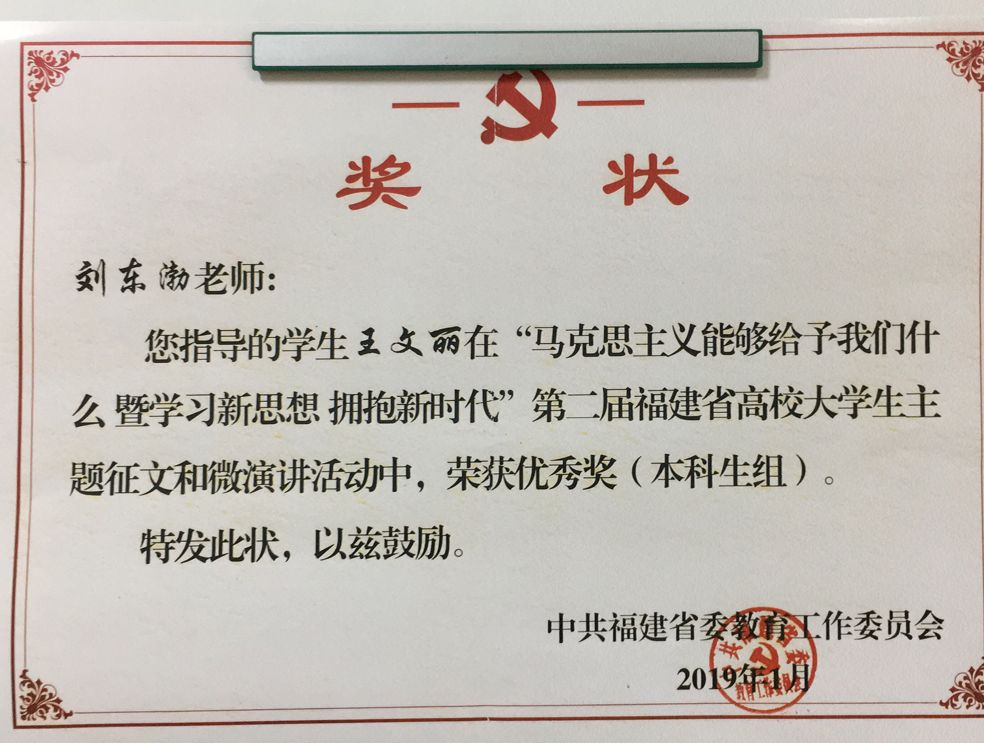 奖 状
刘东渤老师：
您指导的学生王文丽在“马克思主义能够给予我们什
么 暨学习新思想 拥抱新时代”第二届福建省高校大学生主
题征文和微演讲活动中，荣获优秀奖（本科生组）。
特发此状，以兹鼓励。
中共福建省委教育工作委员会
2019年1月
教育工作委员会